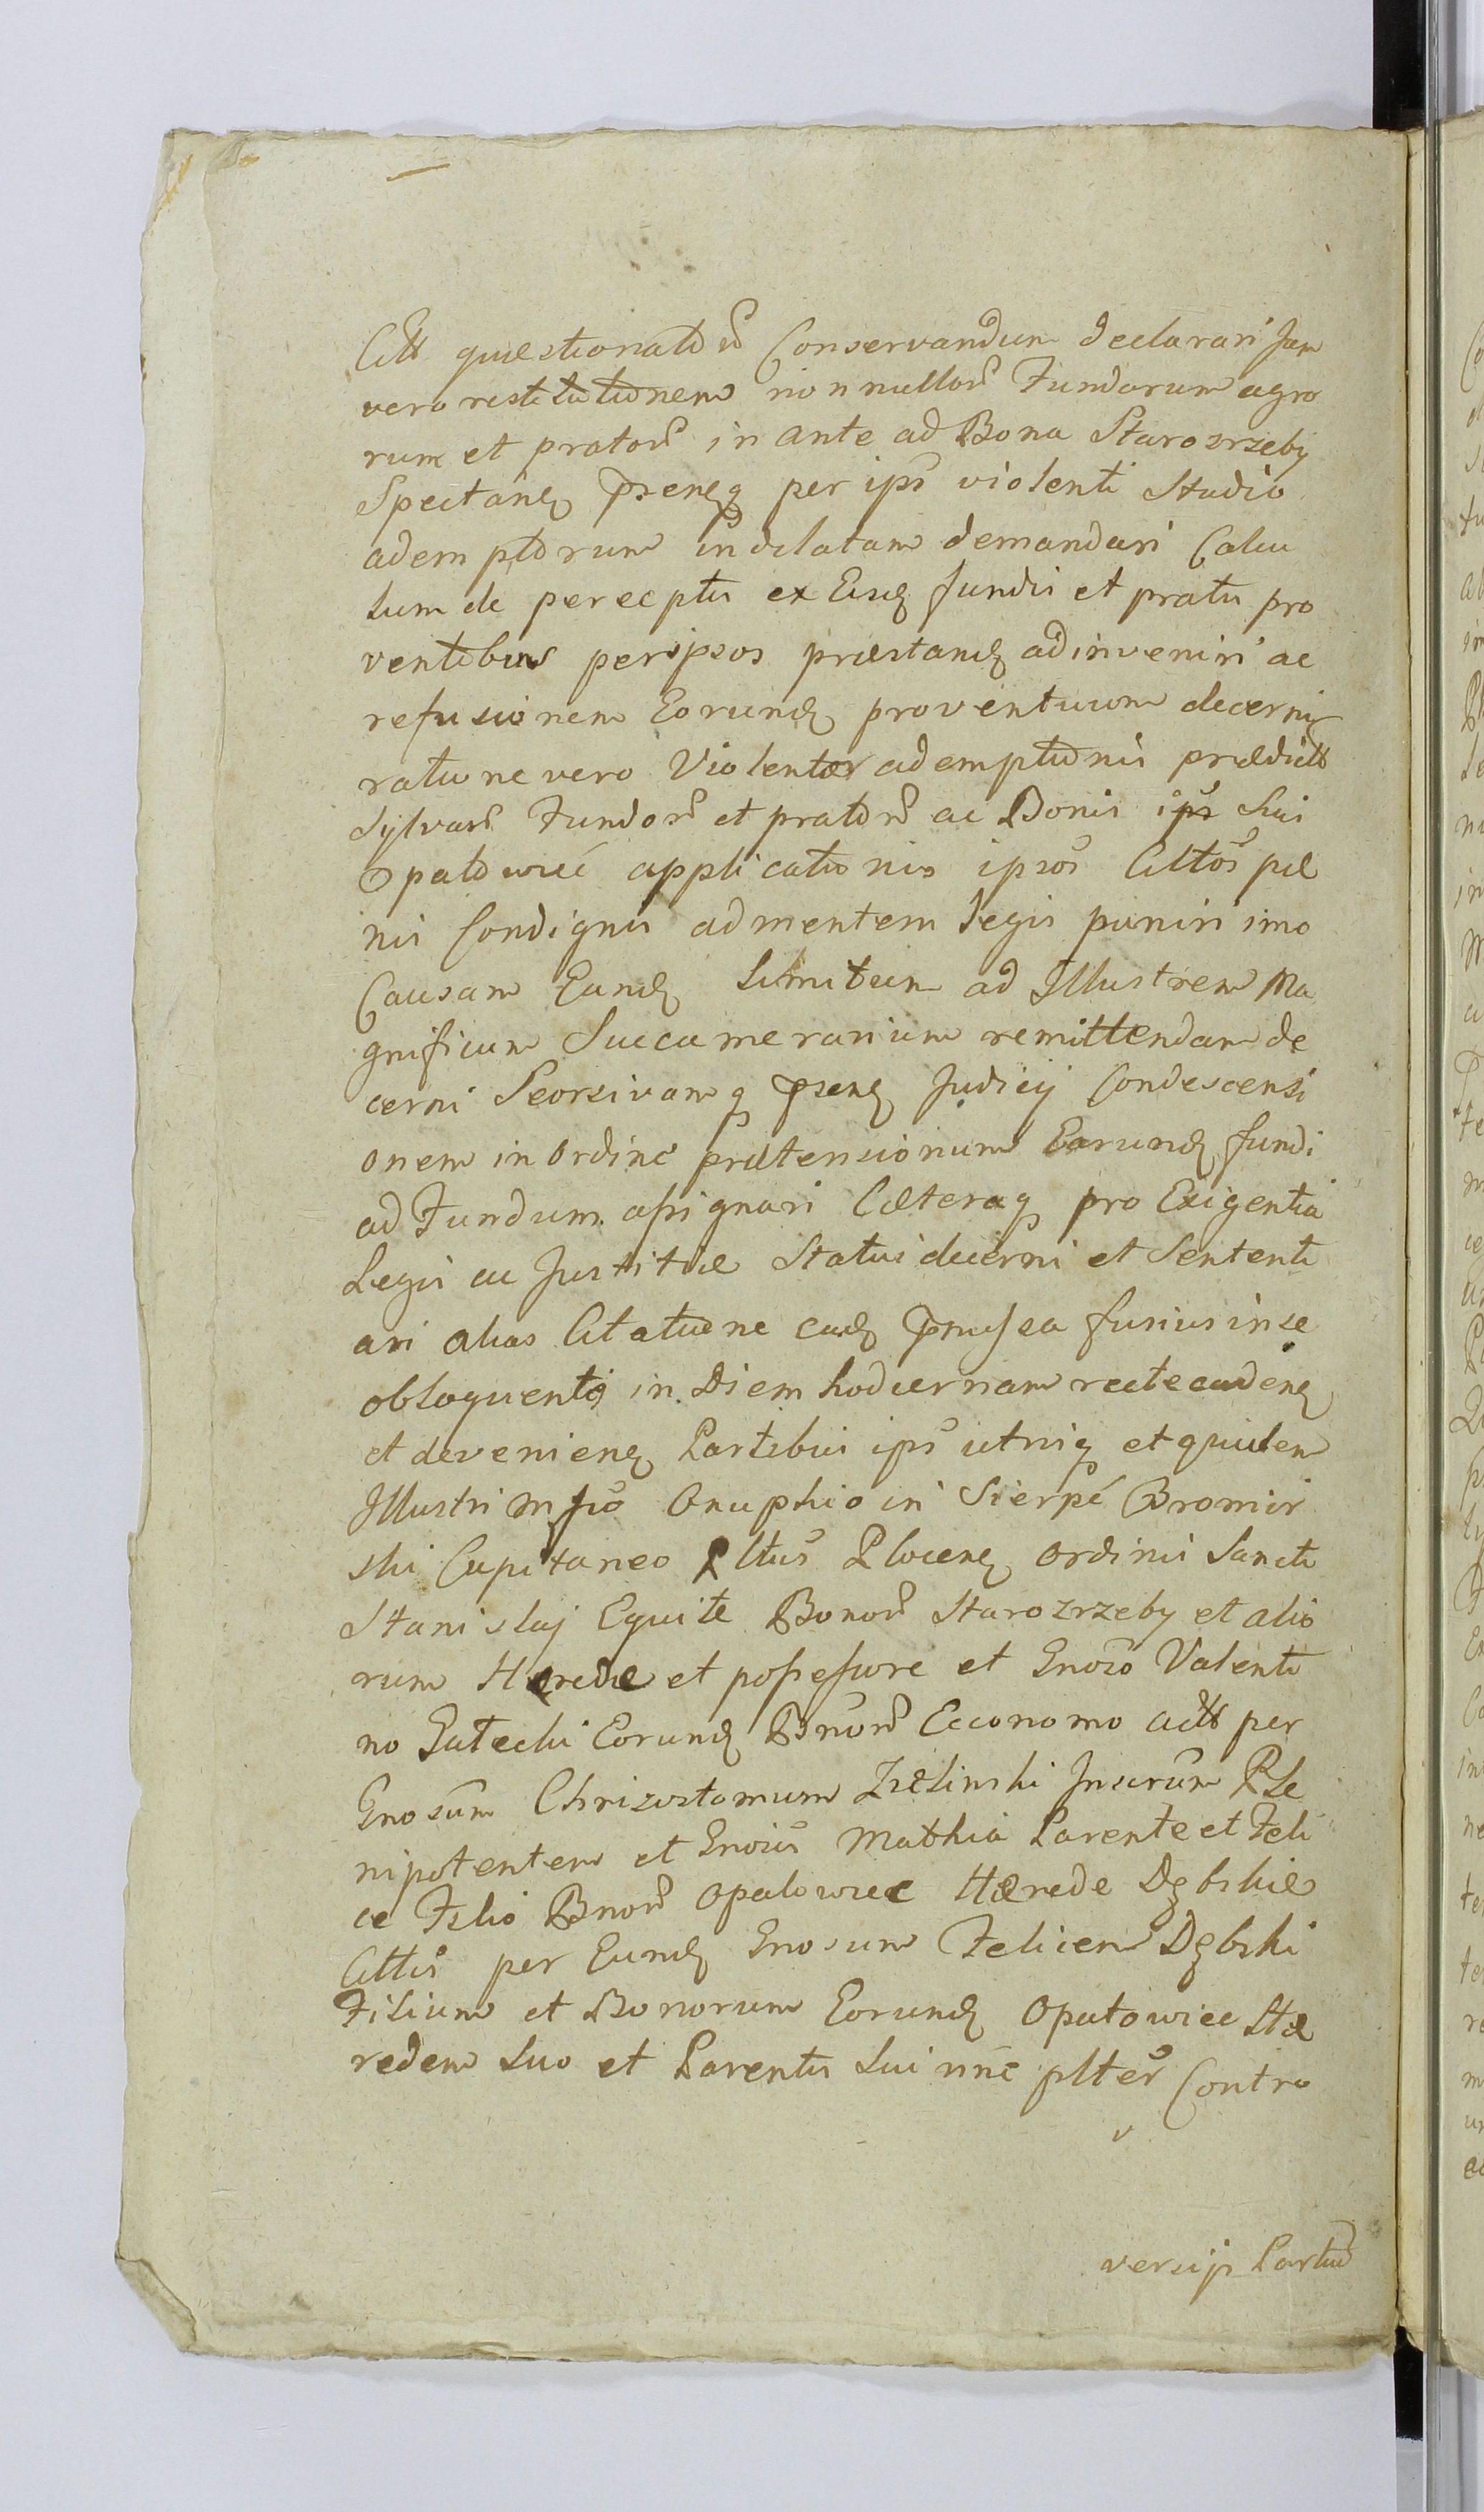 Citt quæstionatorũ Conservandum declarari Jam
vero restitutionem nonnullorũ Fundorum agro
rum et pratorũ in ante ad Bona Starozrzeby
Spectanẽ per ips violenti Studio
ademptorum indilatam demandari Calcu
lum de perceptis ex Eisd fundis et pratis pro
ventibus per ipsos præstand adinveniri ac
refusionem Eorund proventuum decerni
ratione vero Violentæ ademptionis prædictt
Sylvarũ Fundorũ et pratorũ ac Bonis ips Sui
Opatowiec applicationis ipsos Cittos pæ
nis Condignis ad mentem Legis puniri imo
Causam Eand Limitum ad Illustrem Ma
gnificum Succamerarium remittendam de
cerni Seorsivamq Judicij Condescensi
onem in ordine prætensionum Earund fundi
ad Fundum assignari Cæteraq pro Exigentia
Legis ac Justitiæ Statui decerni et Sententi
ari alias Citatione ead fusius in se
obloquenti in Diem hodiernam recte caden
et devenien Partibus ips utrisq et quidem
Illustri Onuphrio in Sierpc Bromir
ski Capitaneo Plttus Plocen ordinis Sancti
Stanislaj Equite Bonorũ Starozrzeby et alio
rum Hærede et possessore et Gnoso Valenti
no Eorund Bnorũ Economo actt per
Gnosum Chrizostomum Zielinski Ple
nipotentem et Gnosis Mathia Parente et Feli
ce Filio Bnorũ Opatowiec Hærede Dębskie
Cittis per Eund Gnosum Felicem Dębski
Filium et Bonorum Eorund Opatowiec Hæ
redem Suo et Parentis Sui nnẽ pltẽr Contro
versijs Partiũ